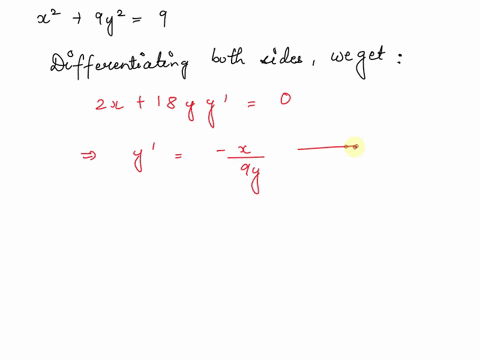 x² + 9y² = 9
Differentiating both sides, we get :
2x + 18 y y' = 0
⇒ y' = - x/9y